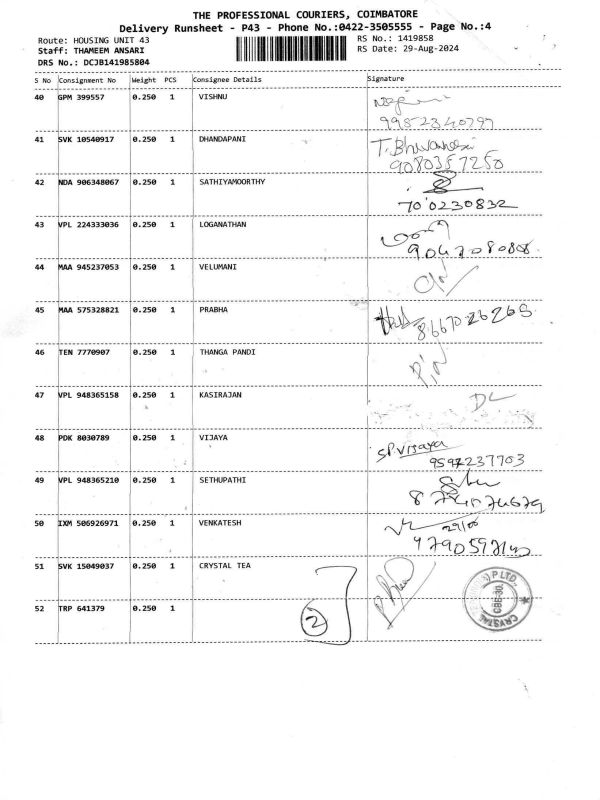 THE PROFESSIONAL COURIERS, COIMBATORE
Delivery Runsheet - P43 - Phone No.:0422-3505555 - Page No.:4
Route: HOUSING UNIT 43 RS No.: 1419858
Staff: THAMEEM ANSARI RS Date: 29-Aug-2024
DRS No.: DCJB141985804
S No Consignment No Weight PCS Consignee Details Signature
40 GPM 399557 0.250 1 VISHNU
9952340797
41 SVK 10540917 0.250 1 DHANDAPANI T. Bhuvaneswari
9080357250
42 NDA 906348067 0.250 1 SATHIYAMOORTHY
7000230832
43 VPL 224333036 0.250 1 LOGANATHAN
9047080808
44 MAA 945237053 0.250 1 VELUMANI
45 MAA 575328821 0.250 1 PRABHA
8667026265
46 TEN 7770907 0.250 1 THANGA PANDI
47 VPL 948365158 0.250 1 KASIRAJAN DL
48 PDK 8030789 0.250 1 VIJAYA SP.Vijaya
9597237703
49 VPL 948365210 0.250 1 SETHUPATHI
50 IXM 506926971 0.250 1 VENKATESH
51 SVK 15049037 0.250 1 CRYSTAL TEA
52 TRP 641379 0.250 1 2
CRYSTAL P LTD. CBE-30.